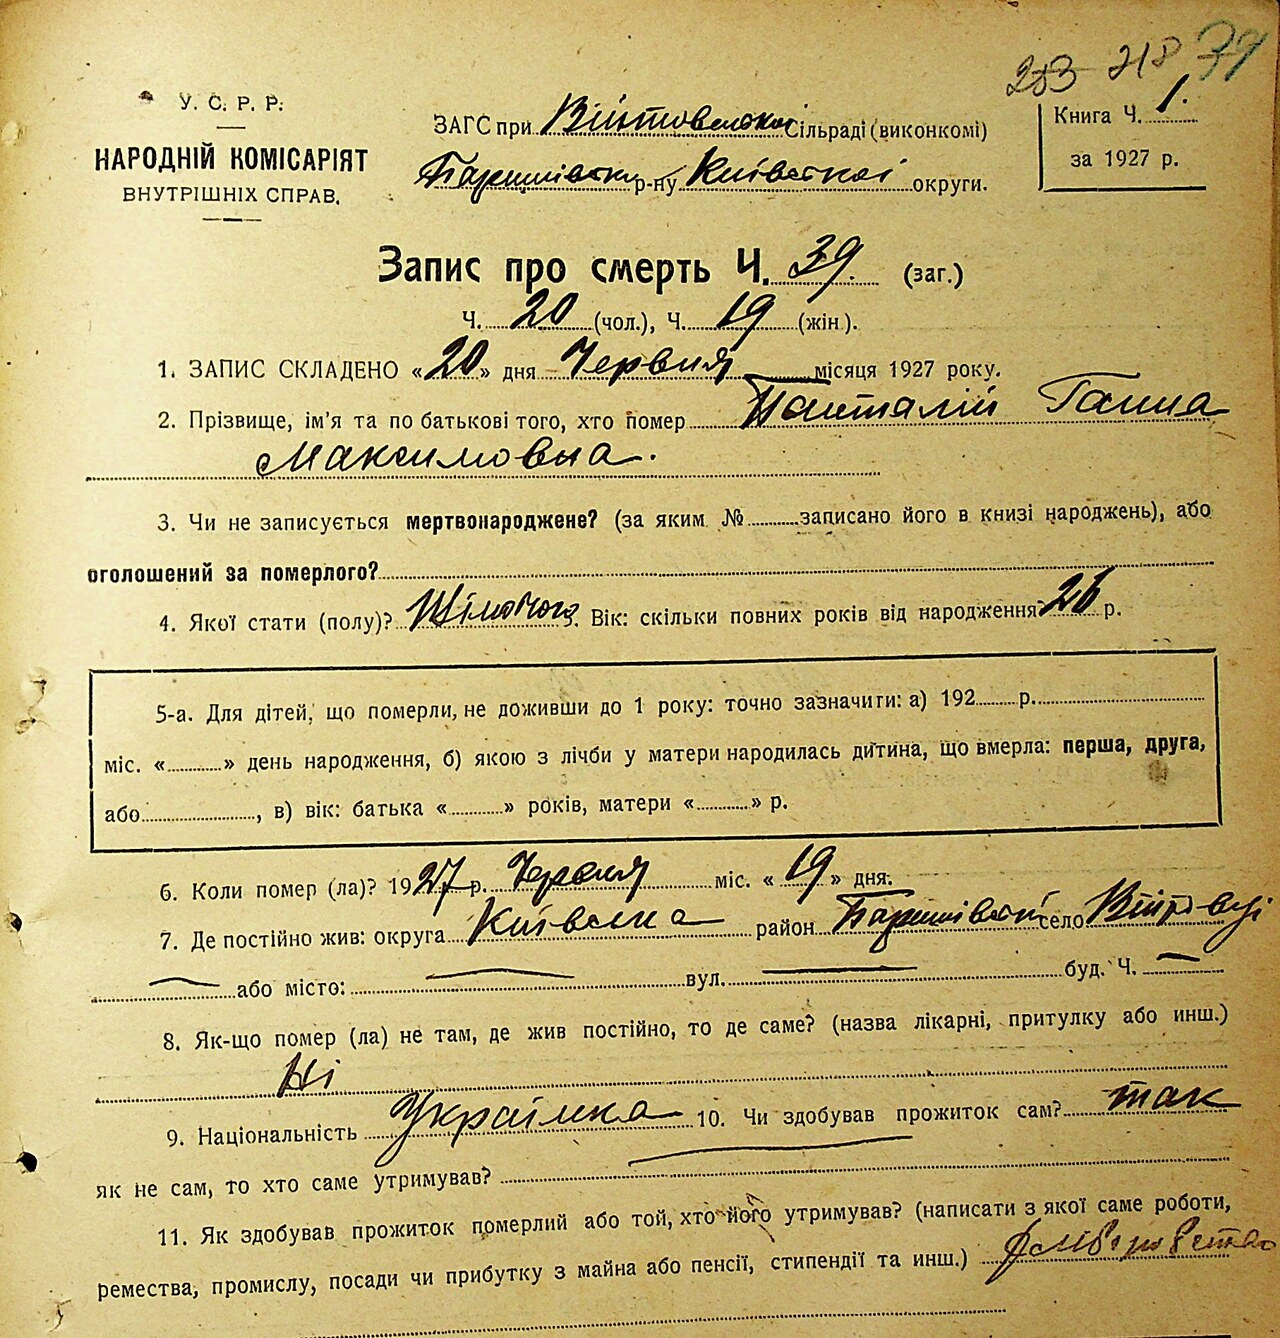 203 218 79
У. С. Р. Р.
НАРОДНІЙ КОМІСАРІЯТ
ВНУТРІШНІХ СПРАВ.
ЗАГС при Війтовецькій Сільраді (виконкомі)
Баришівськ р-ну Київської округи.
Книга Ч. 1.
за 1927 р.
Запис про смерть Ч. 39. (заг.)
Ч. 20 (чол.), Ч. 19 (жін.).
1. ЗАПИС СКЛАДЕНО «20» дня Червня місяця 1927 року.
2. Прізвище, ім'я та по батькові того, хто помер Панталій Ганна
Максимовна.
3. Чи не записується мертвонароджене? (за яким № записано його в книзі народжень), або
оголошений за померлого?
4. Якої стати (полу)? Жіночого. Вік: скільки повних років від народження 26 р.
5-а. Для дітей, що померли, не доживши до 1 року: точно зазначити: а) 192 р.
міс. « » день народження, б) якою з лічби у матери народилась дитина, що вмерла: перша, друга,
або , в) вік: батька « » років, матери « » р.
6. Коли помер (ла)? 1927 р. Червня міс. «19» дня.
7. Де постійно жив: округа Київська район Баришівськ село
або місто: вул. буд. Ч.
8. Як-що помер (ла) не там, де жив постійно, то де саме? (назва лікарні, притулку або инш.)
Ні
9. Національність Українка 10. Чи здобував прожиток сам? так
як не сам, то хто саме утримував?
11. Як здобував прожиток померлий або той, хто його утримував? (написати з якої саме роботи,
ремества, промислу, посади чи прибутку з майна або пенсії, стипендії та инш.)